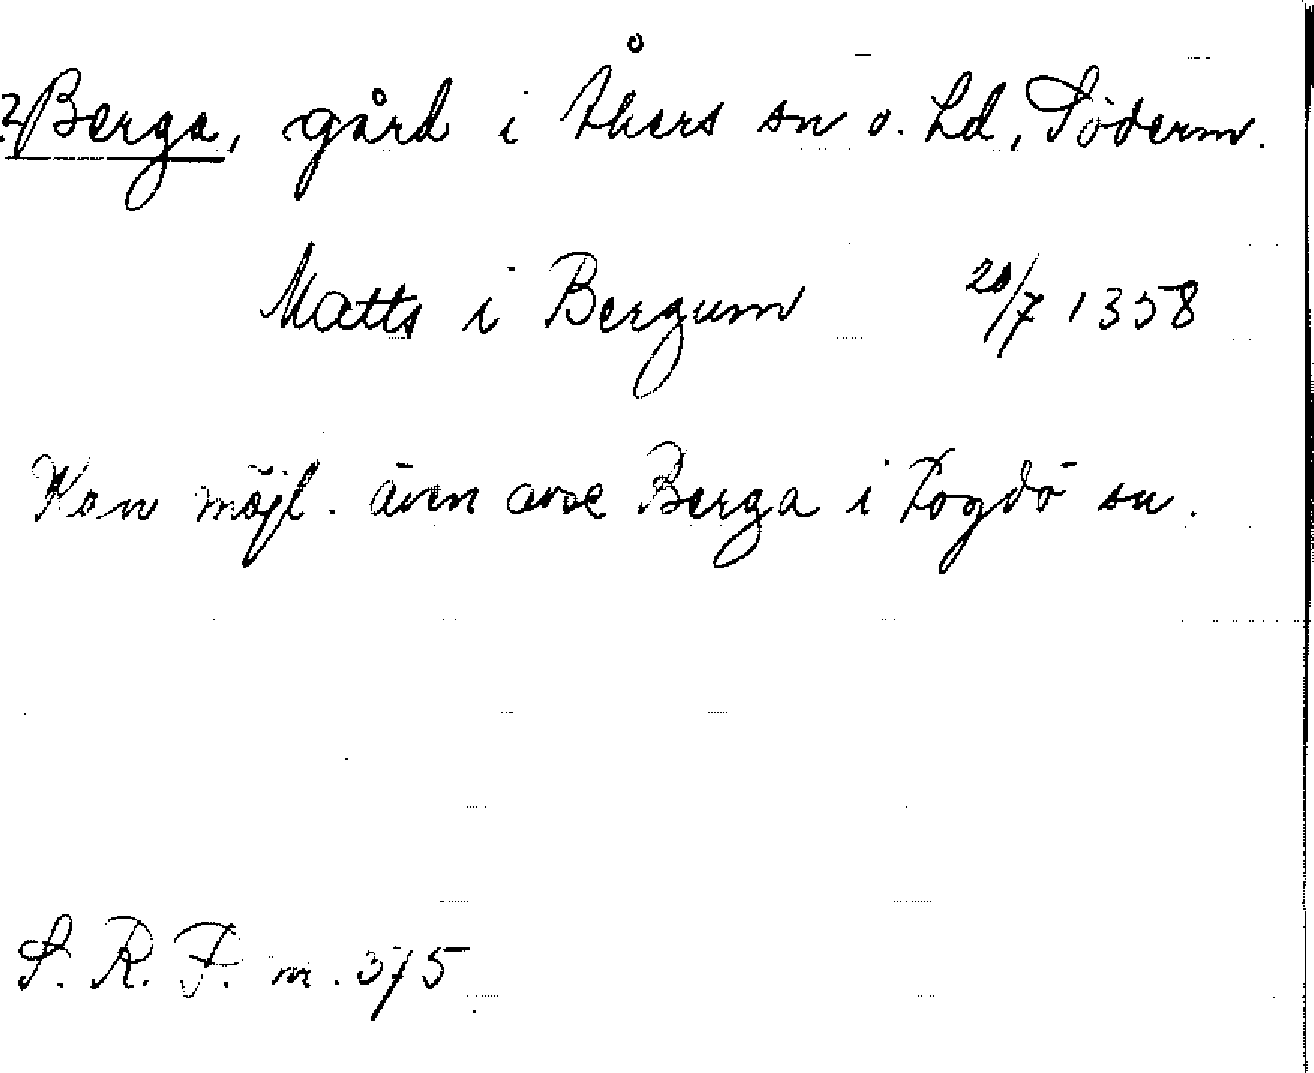 ?Berga, gård i Åkers sn o. hd, Söderm.
Matts i Bergum 20/7 1358
Kan möjl. även avse Berga i Fogdö sn.
S. R. F. nr. 375